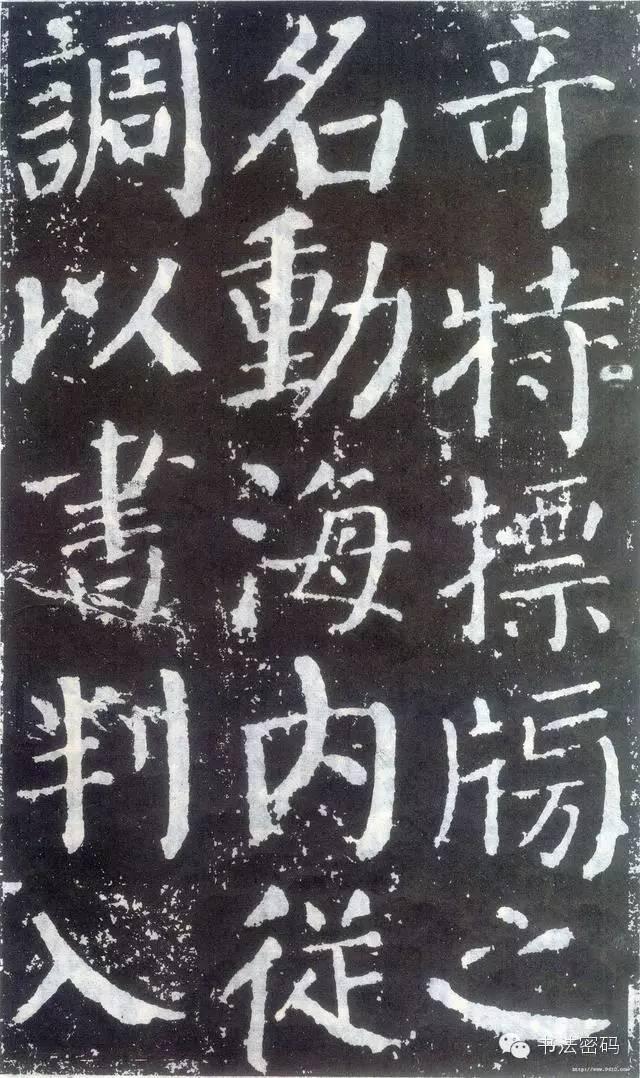 竒特摽牓之
名動海内從
調以書判入
书法密码